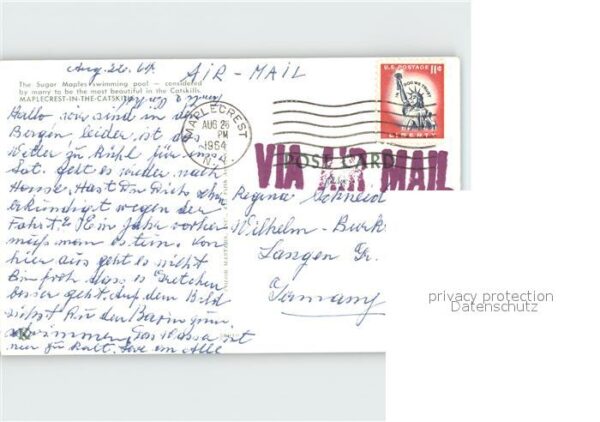 Aug. 26. 64
AIR-MAIL
The Sugar Maples swimming pool — considered
by many to be the most beautiful in the Catskills.
MAPLECREST-IN-THE-CATSKILLS
Hallo, wir sind in den
Bergen, leider ist das
Wetter zu kühl für uns
Sat. geht es wieder nach
Hause. Hast Du Dich schon
erkündigt wegen der
Fahrt? Ein Jahr vorher
muss man es tun. Von
hier aus geht es nicht
Bin froh dass es Gretchen
besser geht. Auf dem Bild
siehst Du den Basin zum
schwimmen. Das Wasser ist
nur zu kalt. Love an Alle
MAPLECREST
AUG 26
PM
1964
N.Y.
U.S. POSTAGE 11¢
IN GOD WE TRUST
LIBERTY
POST CARD
VIA AIR MAIL
Regina Schneid
Wilhelm-Burk
Langen
Germany
privacy protection
Datenschutz